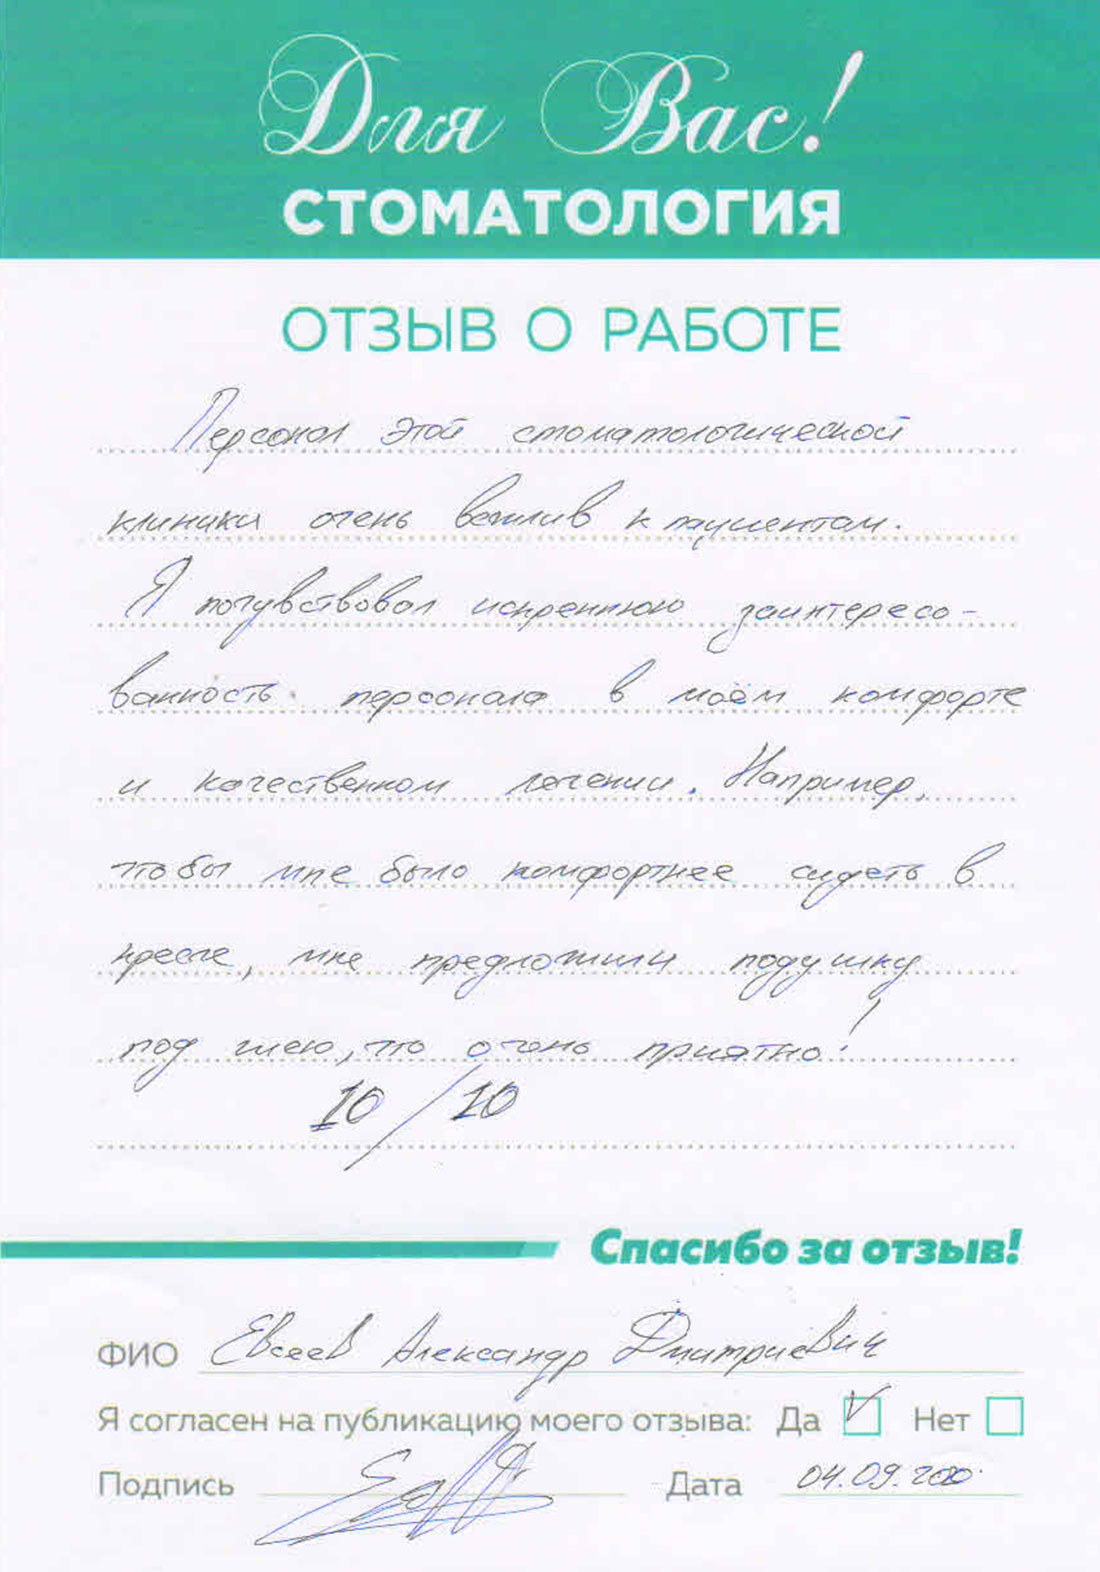 Для Вас!
СТОМАТОЛОГИЯ
ОТЗЫВ О РАБОТЕ
Персонал этой стоматологической
клиники очень вежлив к пациентам.
Я почувствовал искреннюю заинтересо-
ванность персонала в моём комфорте
и качественном лечении. Например,
чтобы мне было комфортнее сидеть в
кресле, мне предложили подушку
под шею, что очень приятно!
10/10
Спасибо за отзыв!
ФИО Евсеев Александр Дмитриевич
Я согласен на публикацию моего отзыва: Да V Нет
Подпись Дата 04.09.2020